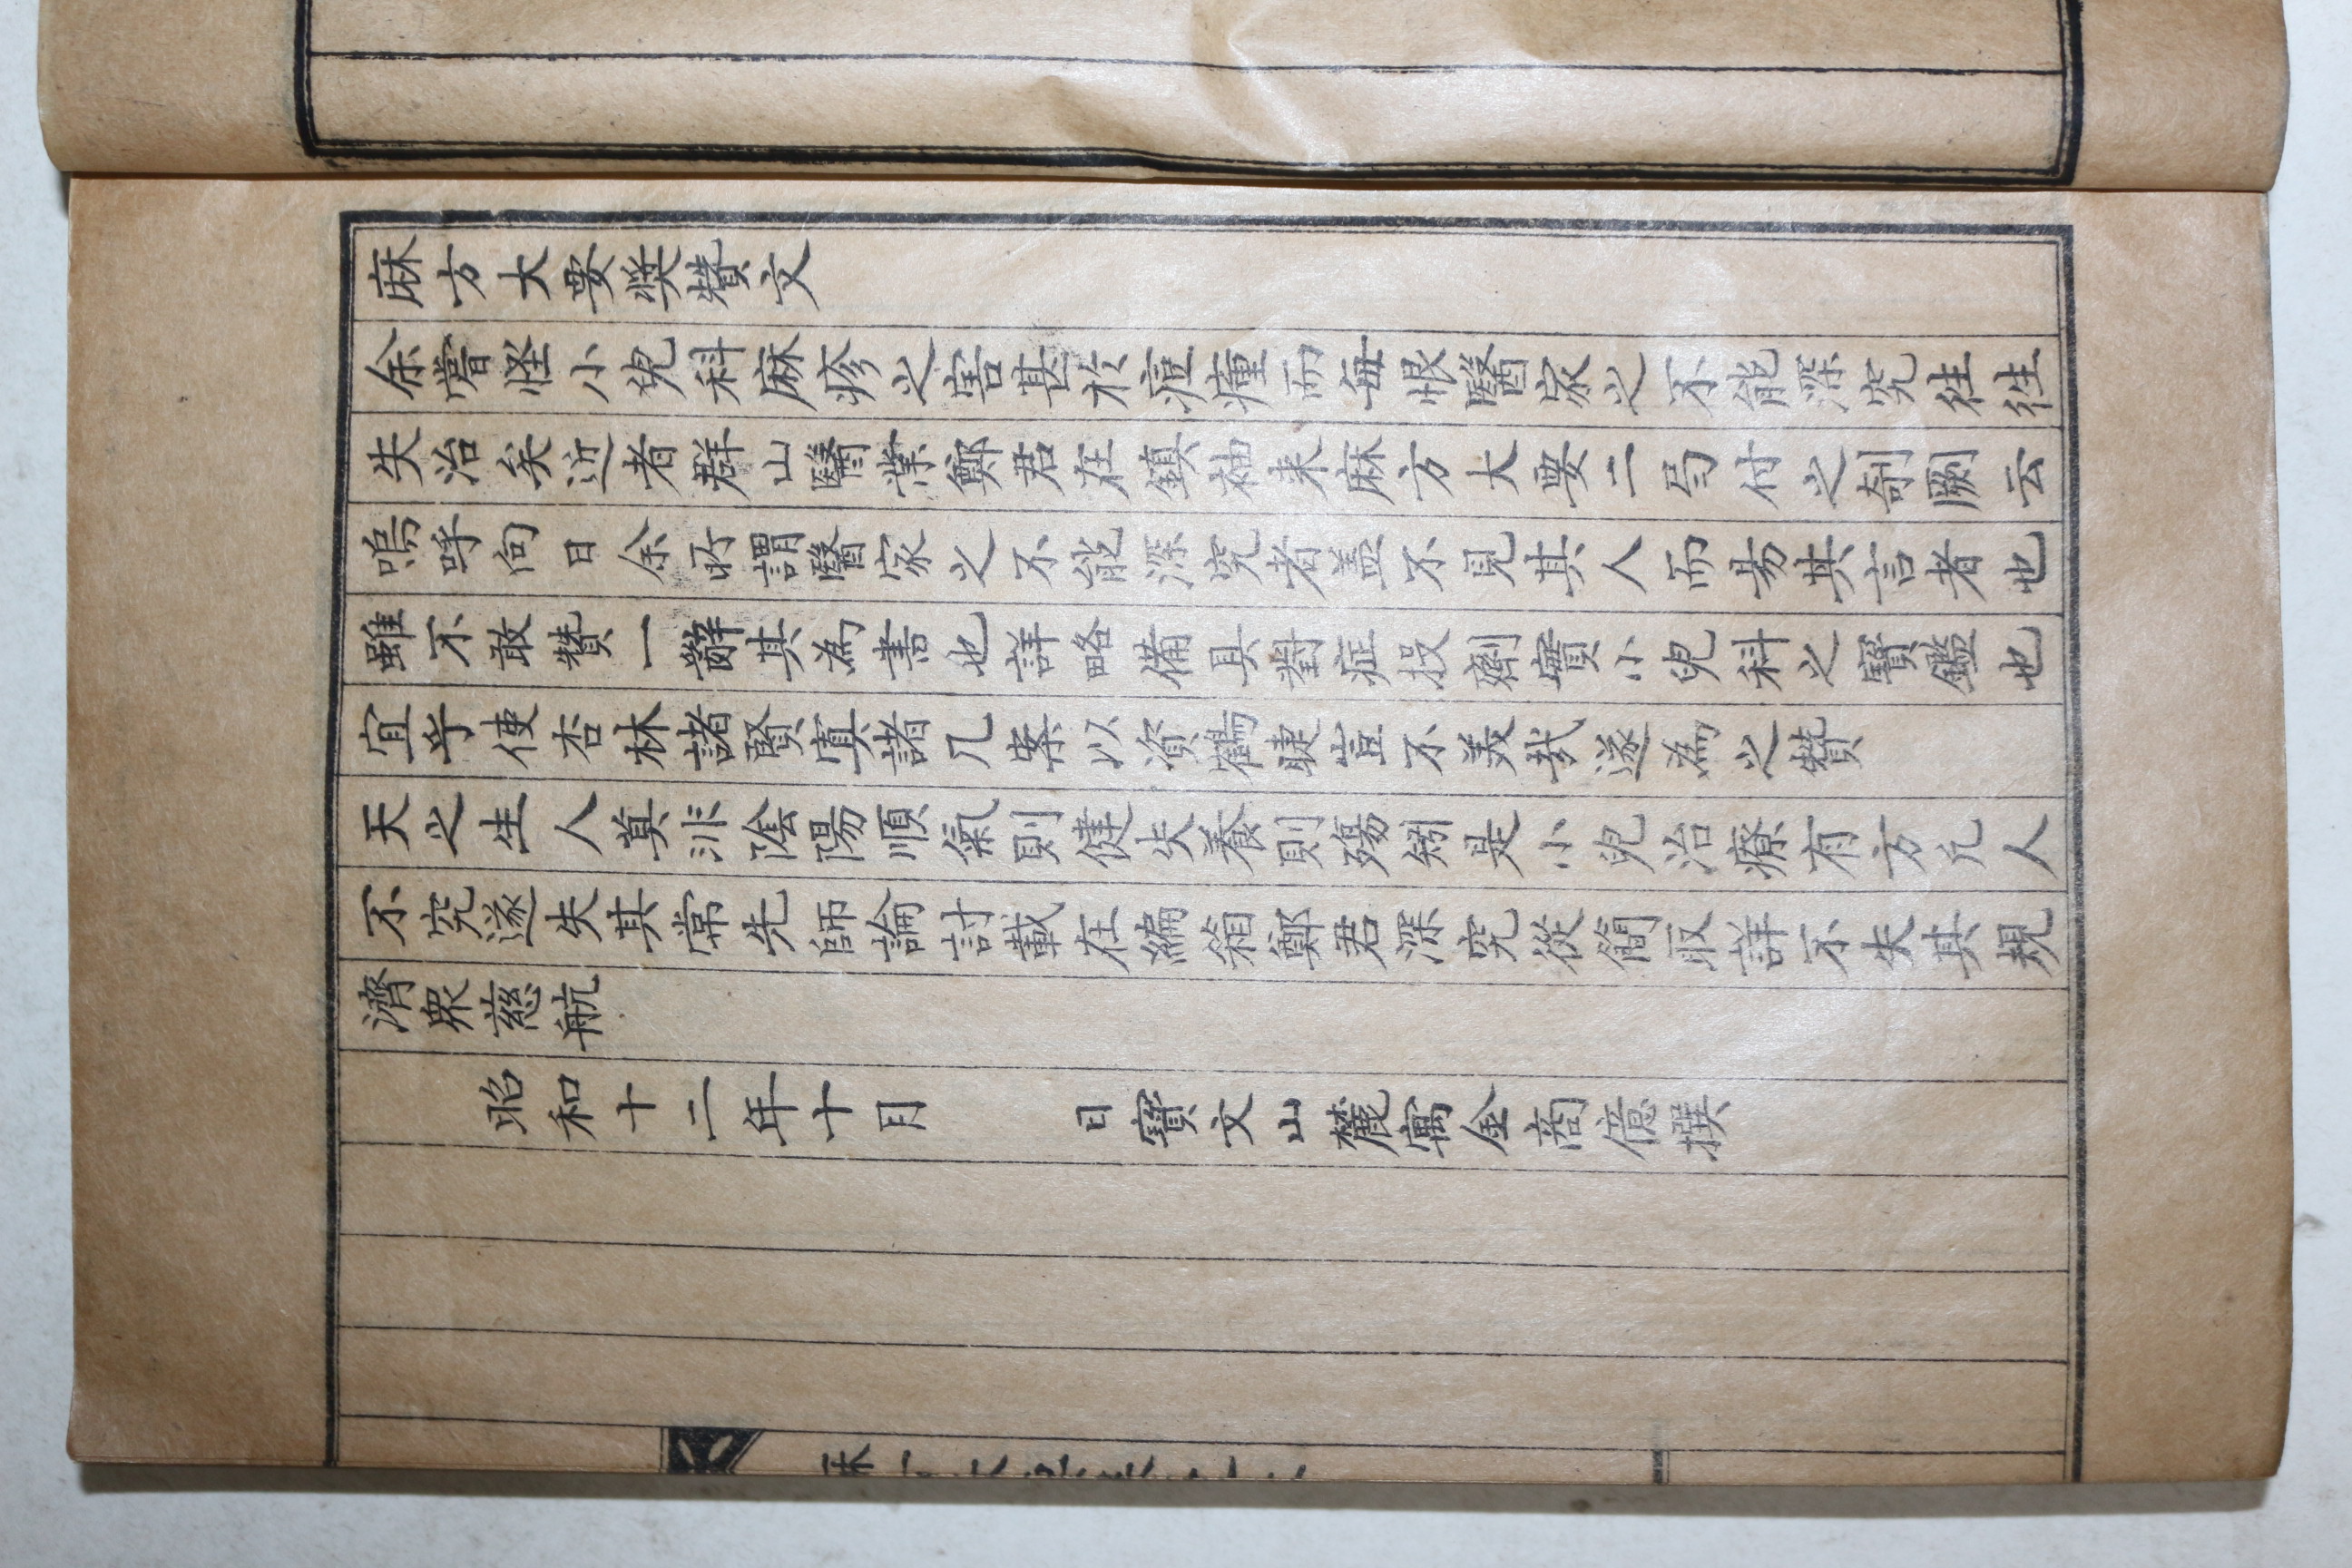 麻方大要奬贊文
余嘗怪小兒科麻疹之害甚於痘瘴而每恨醫家之不能深究徃徃
失治矣近者群山醫業鄭君在鎮袖来麻方大要二局付之剞劂云
嗚呼向日余所謂醫家之不能深究者盖不見其人而易其言者也
雖不敢贊一辭其為書也詳略備具對症投劑實小兒科之寶鑑也
宜乎使杏林諸賢寘諸几案以資鶴睫豈不美哉遂為之贊
天之生人莫非陰陽順氣則健失養則殤矧是小兒治療有方凡人
不究遂失其常先師論討載在編箱鄭君深究從簡取詳不失其規
濟衆慈航
昭和十二年十月　　日寶文山麓寓金商億撰